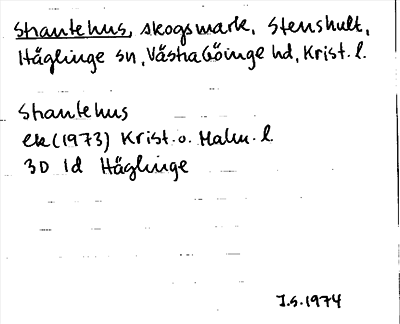 Skantehus, skogsmark, Stenshult,
Häglinge sn, Västra Göinge hd, Krist. l.
Skantehus
ek (1973) Krist. o. Malm. l.
3D 1d Häglinge
J.S. 1974